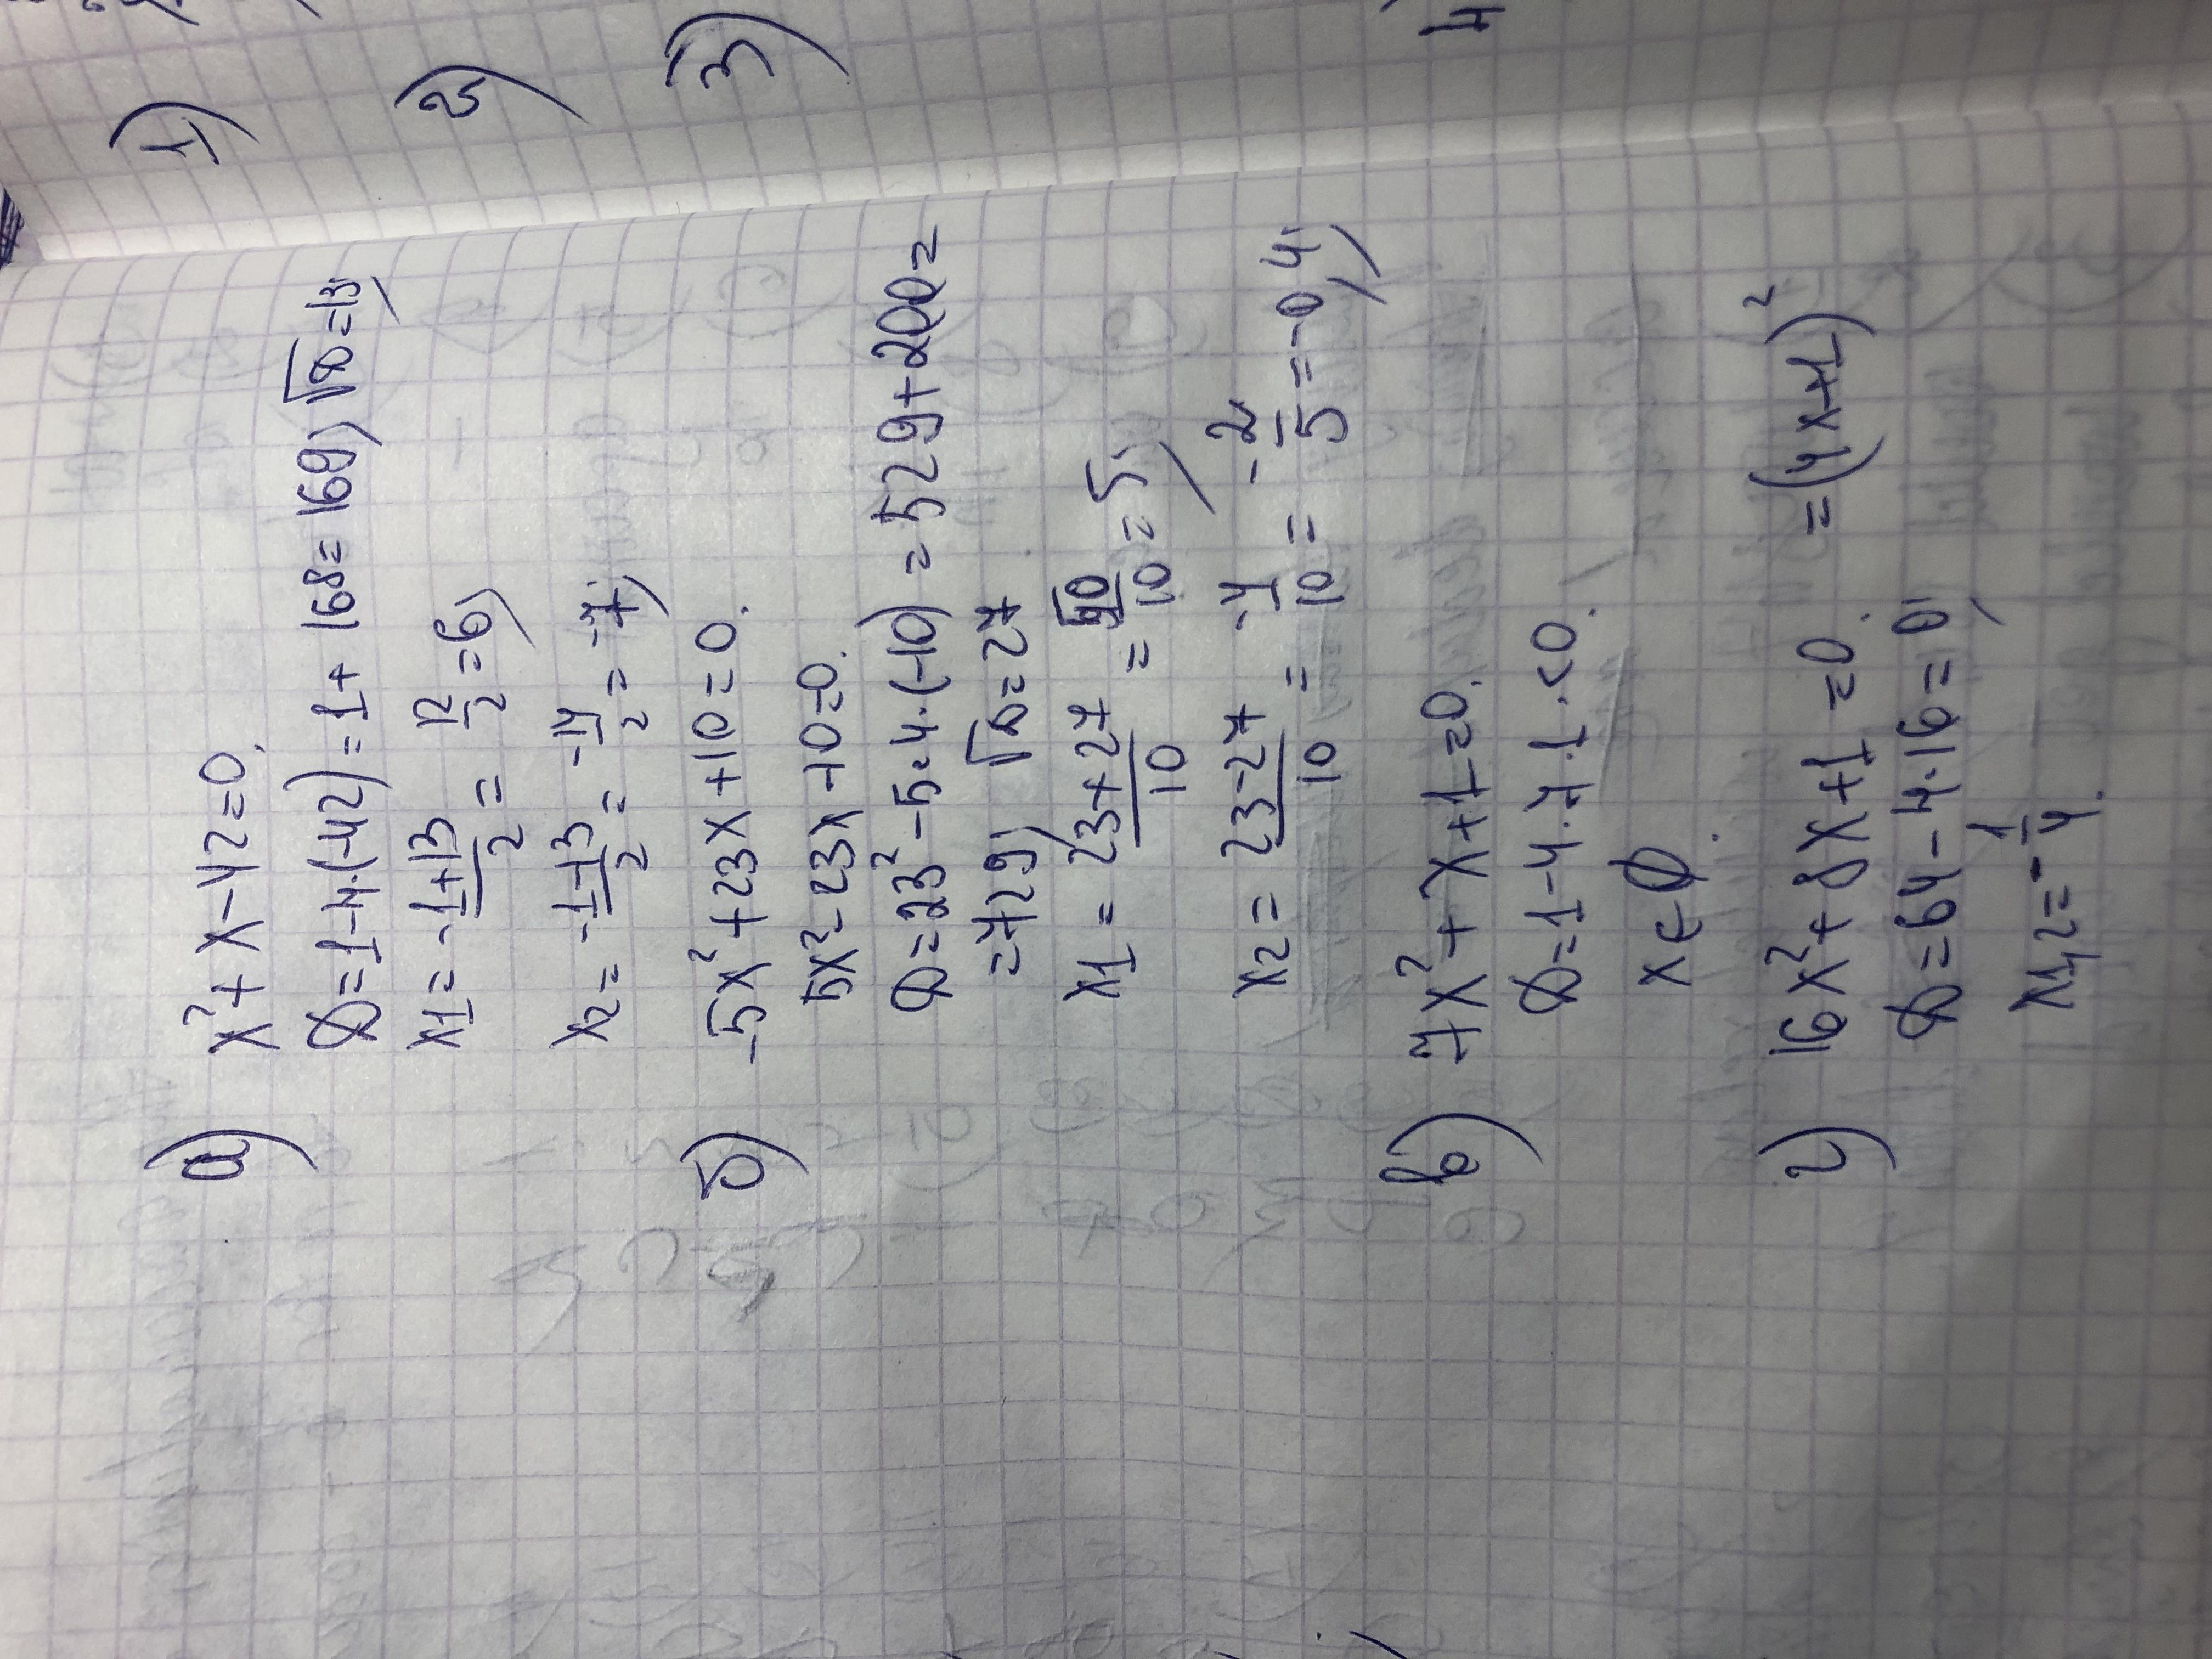 а) x²+x-42=0.
D=1-4·(-42)=1+168=169, √D=13,
x1=-1+13/2=12/2=6,
x2=-1-13/2=-14/2=-7,
б) -5x²+23x+10=0.
5x²-23x-10=0.
D=23²-5·4·(-10)=529+200=
=729, √D=27
x1=23+27/10=50/10=5,
x2=23-27/10=-4/10=-2/5=-0,4,
в) 7x²+x+1=0.
D=1-4·7·1<0.
x∈∅.
г) 16x²+8x+1=0. =(4x+1)²
D=64-4·16=0,
x1,2=-1/4.
1)
2)
3)